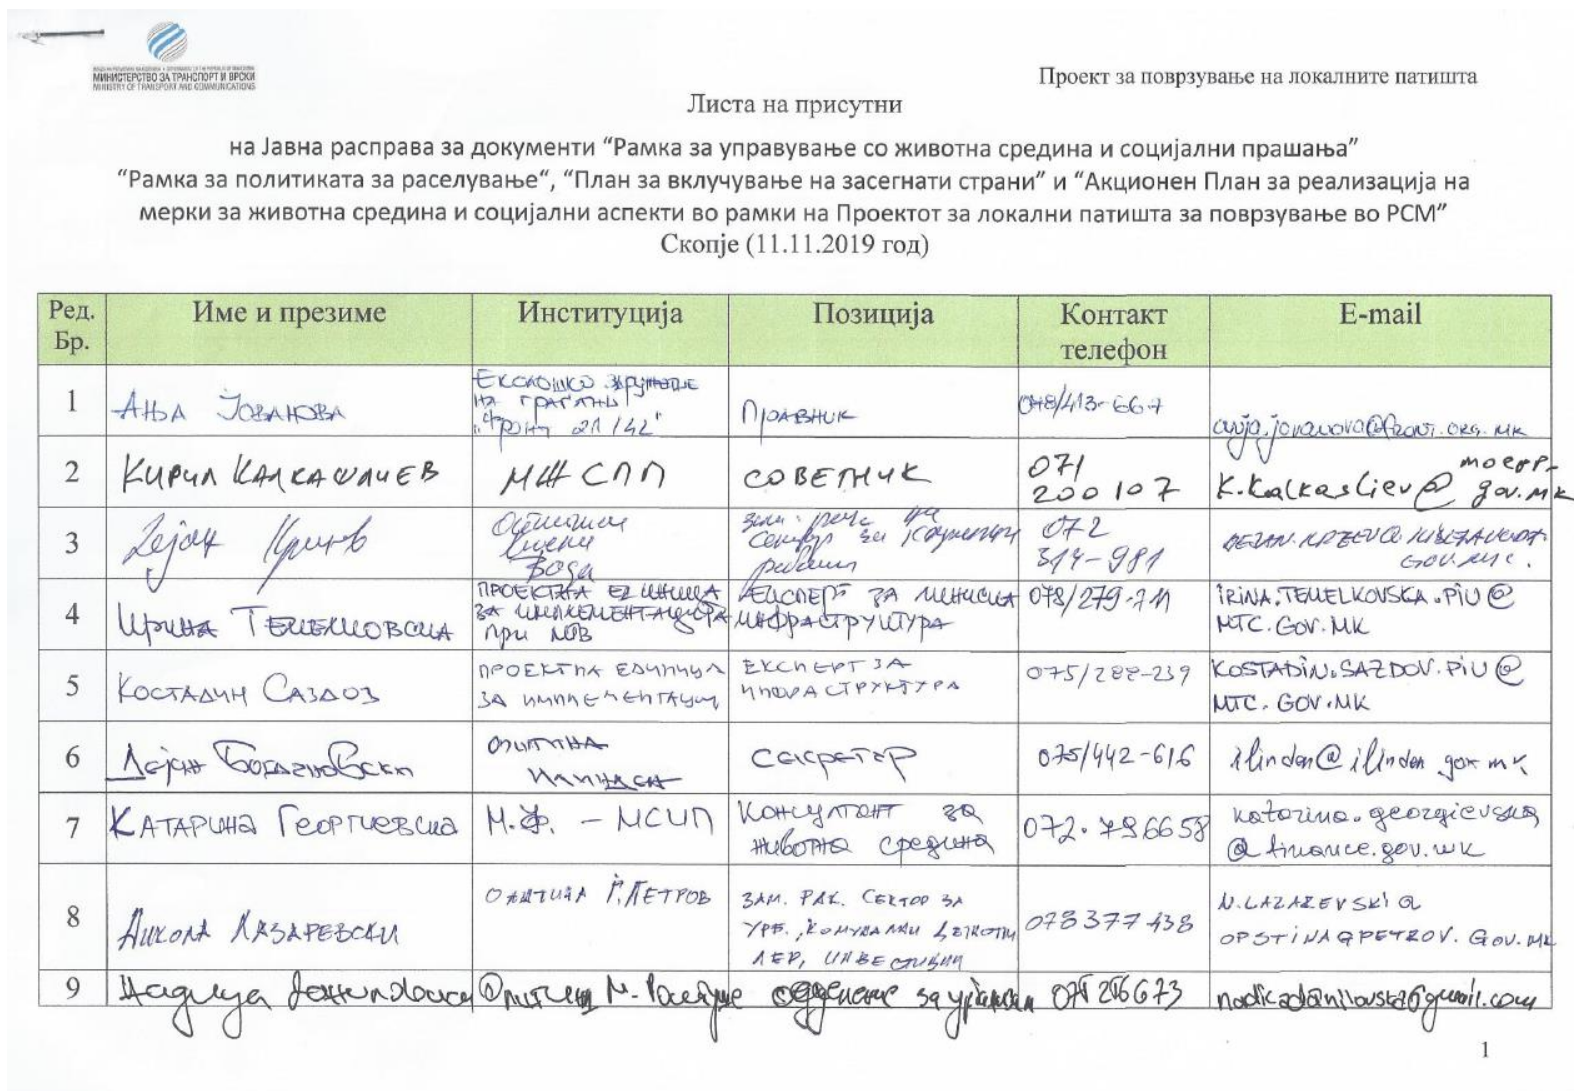 МИНИСТЕРСТВО ЗА ТРАНСПОРТ И ВРСКИ
MINISTRY OF TRANSPORT AND COMMUNICATIONS
Проект за поврзување на локалните патишта
Листа на присутни
на Јавна расправа за документи “Рамка за управување со животна средина и социјални прашања”
“Рамка за политиката за раселување“, “План за вклучување на засегнати страни” и “Акционен План за реализација на
мерки за животна средина и социјални аспекти во рамки на Проектот за локални патишта за поврзување во РСМ”
Скопје (11.11.2019 год)
Ред. Бр. Име и презиме Институција Позиција Контакт телефон E-mail
1 Ања Јованова Еколошко здружение на граѓани "Фронт 21/42" Правник 078/413-667 anja.jovanova@front.org.mk
2 Кирил Калкашлиев МЖСПП СОВЕТНИК 071 200 107 K.Kalkasliev@moepp.gov.mk
3 Дејан Општина 072 314-981
4 Ирина Темелковска ПРОЕКТНА ЕДИНИЦА ЗА ИМПЛЕМЕНТАЦИЈА При МТВ ЕКСПЕРТ ЗА ИНФРАСТРУКТУРА 078/279-711 IRINA.TEMELKOVSKA.PIU@ MTC.GOV.MK
5 Костадин Саздов ПРОЕКТНА ЕДИНИЦА ЗА ИМПЛЕМЕНТАЦИЈ ЕКСПЕРТ ЗА ИНФРАСТРУКТУРА KOSTADIN.SAZDOV.PIU@ MTC.GOV.MK
6 Дејан општина Секретар 075/442-616 ilinden@ilinden.gov.mk
7 КАТАРИНА ГЕОРГИЕВСКА М.Ф. – МСИП Консултант за животна средина 072.796658 katarina.georgievska @finance.gov.mk
8 Никола Лазаревски ОПШТИНА Ѓ.ПЕТРОВ ЗАМ. РАК. СЕКТОР ЗА УРБ., КОМУНАЛНИ ИНВЕСТИЦИИ 078377438 N.LAZAREVSKI@ OPSTINAGPETROV.GOV.MK
9 Надица Даниловска Општина одделение за
1